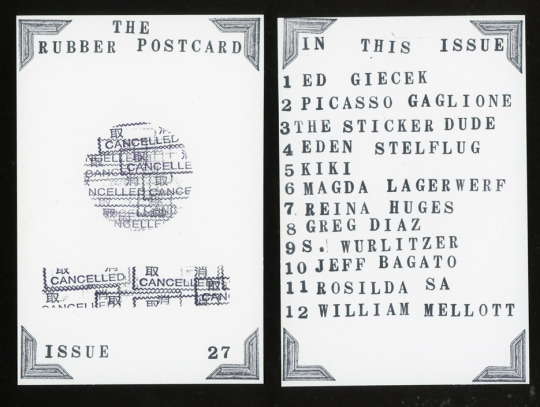 THE
RUBBER POSTCARD
取 消
CANCELLED
NCELLED CANCELLED
取 消
NCELLED CANCE
取 消 取 消
CANCELLED CANCELLED
取 消 取
CANCELLED CANCELLED CAN
ISSUE 27
IN THIS ISSUE
1 ED GIECEK
2 PICASSO GAGLIONE
3 THE STICKER DUDE
4 EDEN STELFLUG
5 KIKI
6 MAGDA LAGERWERF
7 REINA HUGES
8 GREG DIAZ
9 S. WURLITZER
10 JEFF BAGATO
11 ROSILDA SA
12 WILLIAM MELLOTT